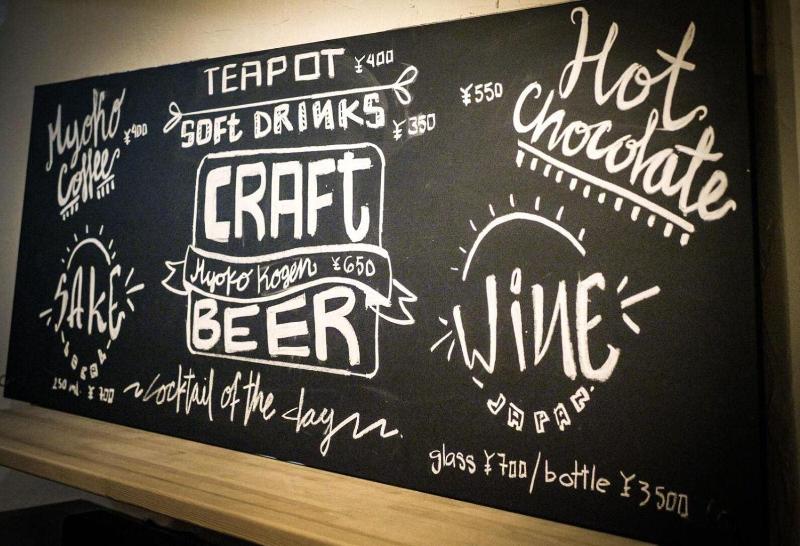 Myoko
Coffee ¥400
TEAPOT ¥400
SOFT DRINKS ¥350
Hot
Chocolate ¥550
CRAFT
Myoko Kogen ¥650
BEER
SAKE
LOCAL
250 ml. ¥ 700
WINE
JAPAN
glass ¥700/bottle ¥3500
cocktail of the day